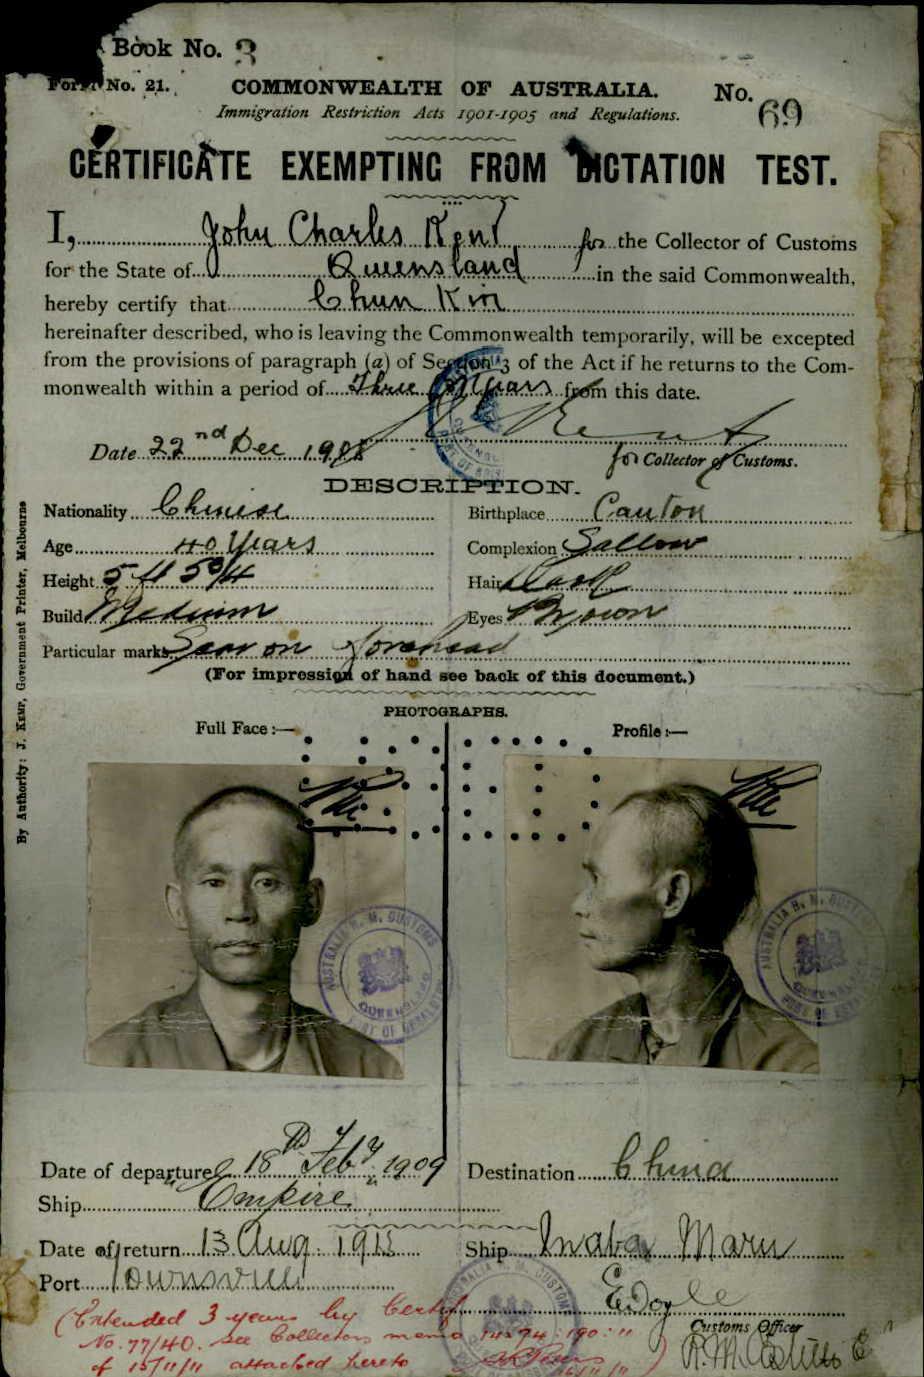 Book No. 3
Form No. 21.
COMMONWEALTH OF AUSTRALIA.
No. 69
Immigration Restriction Acts 1901-1905 and Regulations.
CERTIFICATE EXEMPTING FROM DICTATION TEST.
I, John Charles Kent for the Collector of Customs
for the State of Queensland in the said Commonwealth,
hereby certify that Chun Kin
hereinafter described, who is leaving the Commonwealth temporarily, will be excepted
from the provisions of paragraph (a) of Section 3 of the Act if he returns to the Com-
monwealth within a period of Three Years from this date.
Date 22nd Dec 1908
for Collector of Customs.
DESCRIPTION.
Nationality Chinese Birthplace Canton
Age 40 Years Complexion Sallow
Height 5 ft 5 3/4 Hair Dark
Build Medium Eyes Brown
Particular marks Scar on forehead
(For impression of hand see back of this document.)
PHOTOGRAPHS.
Full Face :— Profile :—
By Authority: J. Kemp, Government Printer, Melbourne
AUSTRALIA H. M. CUSTOMS
QUEENSLAND
AUSTRALIA H. M. CUSTOMS
QUEENSLAND
Date of departure 18th Feby 1909 Destination China
Ship "Empire"
Date of return 13 Aug. 1913 Ship Inaba Maru
Port Townsville
E Doyle
Customs Officer
(Extended 3 years by Certif
No. 77/40. see Collectors memo
of 15/11/11 attached hereto
16/11/11)